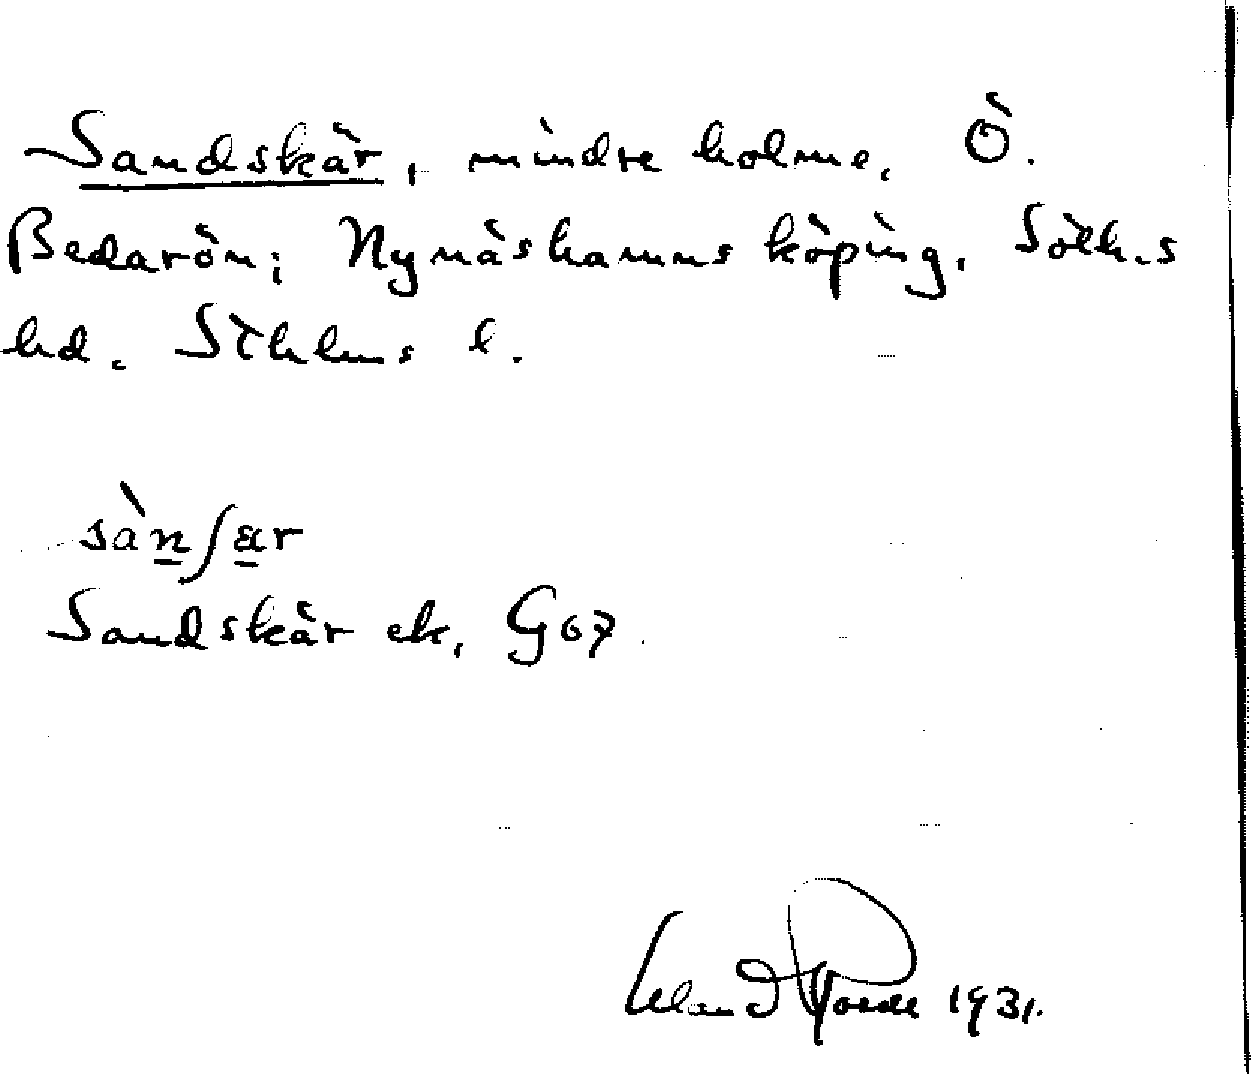 Sandskär, mindre holme, Ö.
Bedarön; Nynäshamns köping, Söth.s
hd. Sthlms l.
sànʃær
Sandskär ek, G 67
1931.